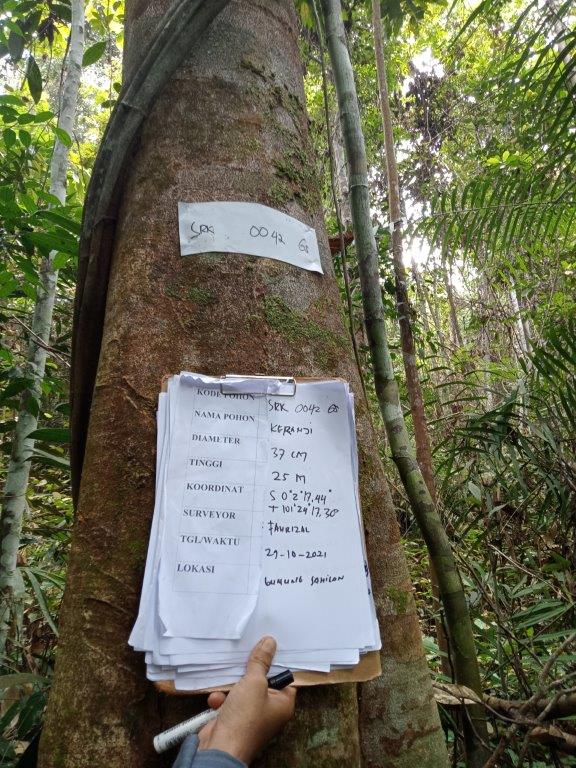 SRK 0042 Gs
KODE POHON SRK 0042 Gs
NAMA POHON KERANJI
DIAMETER 37 CM
TINGGI 25 M
KOORDINAT S 0°2'17,44"
+ 101°24'17,30"
SURVEYOR : FAHRIZAL
TGL/WAKTU 29-10-2021
LOKASI GUNUNG SAHILAN